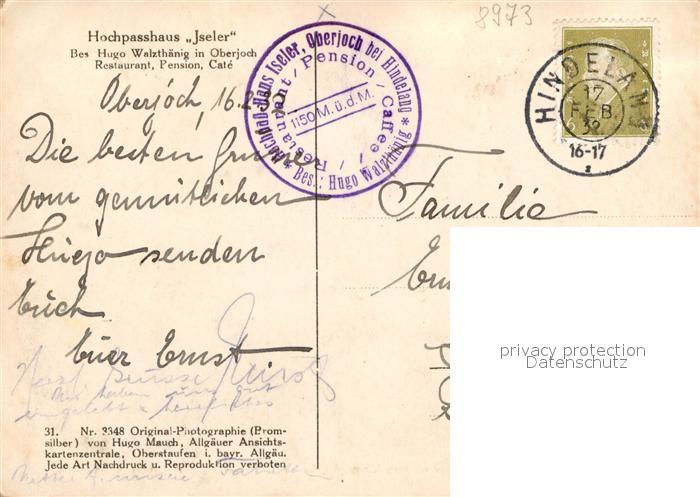 8973
Hochpasshaus „Jseler"
Bes Hugo Walzthänig in Oberjoch
Restaurant, Pension, Café
Hochpaß-Haus Iseler, Oberjoch bei Hindelang
Restaurant / Pension / Caffee /
1150 M.ü.d.M.
* Bes.: Hugo Walzthänig *
HINDELANG
17
FEB.
32
16-17
Oberjoch, 16.2.32
Die besten Grüsse
vom gemütlichen
Hugo senden
Euch
Euer Ernst
Familie
privacy protection
Datenschutz
31. Nr. 3348 Original-Photographie (Brom-
silber) von Hugo Mauch, Allgäuer Ansichts-
kartenzentrale, Oberstaufen i. bayr. Allgäu.
Jede Art Nachdruck u. Reproduktion verboten